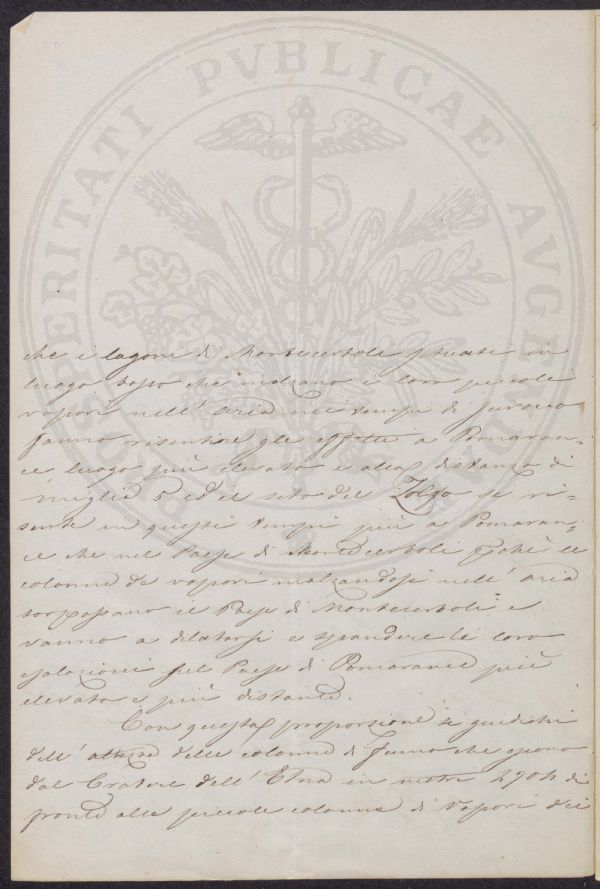 PROSPERITATI PVBLICAE AVGENDAE
che i lagoni di Montecerboli situati in
luogo basso che inalzano i loro piccoli
vapori nell' aria nei tempi di Scirocco
fanno risentire gli effetti a Pomaran-
ce luogo più elevato e alla distanza di
miglia 5 ed il feto del Zolfo se ri-
sente in questi tempi più a Pomaran-
ce che nel Paese di Montecerboli perchè le
colonne de vapori inalzandosi nell' aria
sorpassano il Paese di Montecerboli e
vanno a dilatarsi e spandere le loro
esalazioni sul Paese di Pomarance più
elevato e più distante.
Con questa proporzione si giudichi
dell' altezza delle colonne di fumo che escono
dal Cratere dell' Etna in metri 2904 di
fronte alle piccole colonne di vapori dei